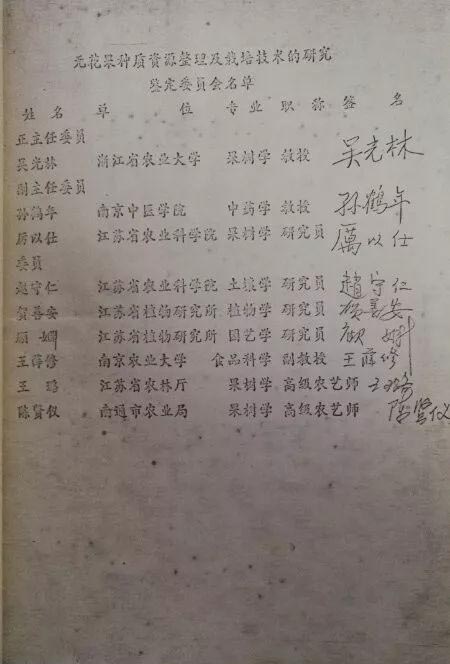 无花果种质资源整理及栽培技术的研究
鉴定委员会名单
姓 名 单 位 专 业 职 称 签 名
正主任委员
吴光林 浙江省农业大学 果树学 教授 吴光林
副主任委员
孙鹤年 南京中医学院 中药学 教授 孙鹤年
厉以仕 江苏省农业科学院 果树学 研究员 厲以仕
委员
赵守仁 江苏省农业科学院 土壤学 研究员 趙守仁
贺善安 江苏省植物研究所 植物学 研究员 贺善安
顾 姻 江苏省植物研究所 园艺学 研究员 顾 姻
王薛修 南京农业大学 食品科学 副教授 王薛修
王 璐 江苏省农林厅 果树学 高级农艺师 王璐
陈贤仪 南通市农业局 果树学 高级农艺师 陈贤仪